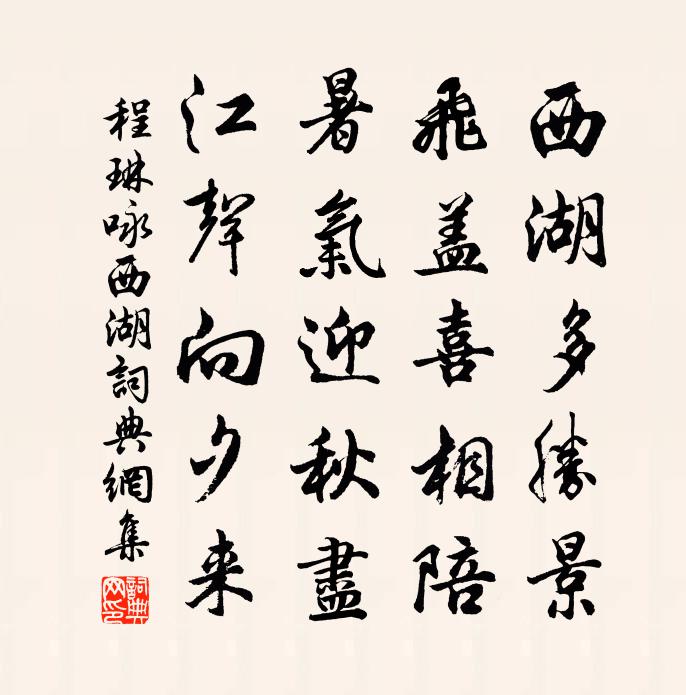 西湖多勝景
飛盖喜相陪
暑氣迎秋盡
江聲向夕来
程琳咏西湖詞典網集
詞典网印